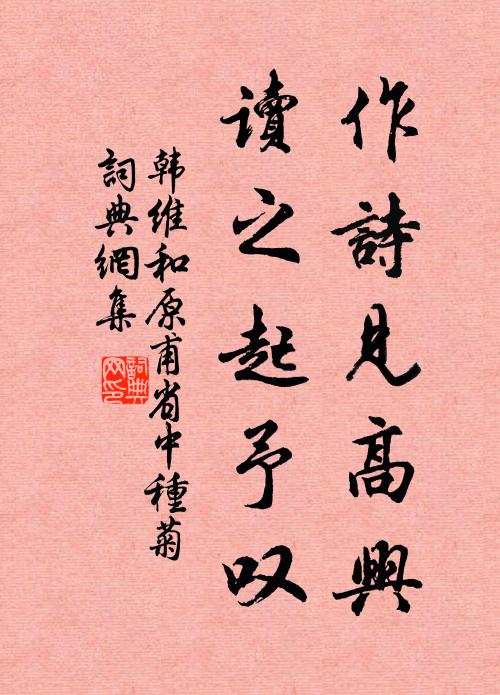 作詩見高興
讀之起予叹
韩維和原甫省中種菊
詞典網集
詞典网印